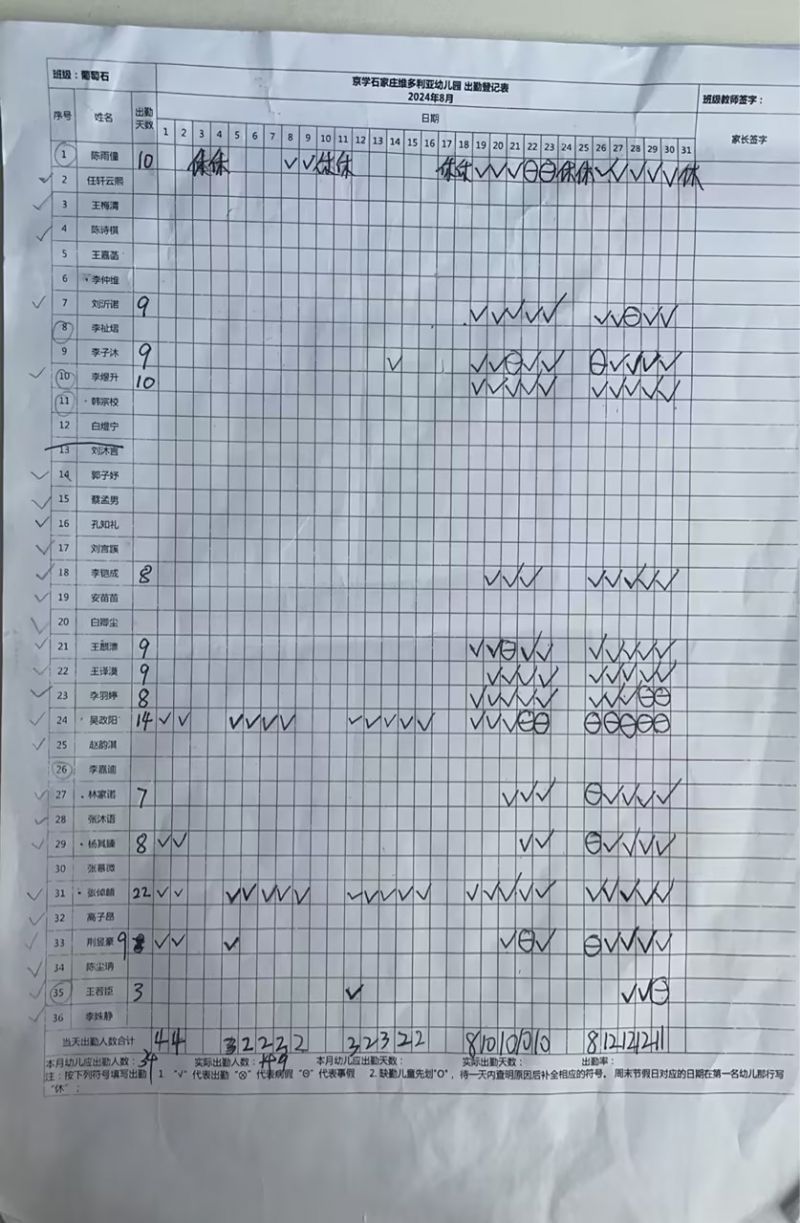 班级：葡萄石
京学石家庄维多利亚幼儿园 出勤登记表
2024年8月
班级教师签字：
序号 姓名 出勤天数 日期 家长签字
1 2 3 4 5 6 7 8 9 10 11 12 13 14 15 16 17 18 19 20 21 22 23 24 25 26 27 28 29 30 31
1 陈雨僮 10 休 休 √ √ 休 休 休 休 √ √ √ ⊖ ⊖ 休 休 √ √ √ √ √ 休
2 任轩云熙
3 王梅清
4 陈诗棋
5 王嘉菡
6 李仲维
7 刘沂诺 9 √ √ √ √ √ √ √ ⊖ √ √
8 李祉熠
9 李子沐 9 √ √ √ ⊖ √ √ ⊖ √ √ √ √
10 李煜升 10 √ √ √ √ √ √ √ √ √ √
11 韩宗校
12 白煜宁
13 刘沐言
14 郭子妤
15 蔡孟男
16 孔知礼
17 刘言蹊
18 李铠成 8 √ √ √ √ √ √ √ √
19 安苗苗
20 白卿尘
21 王麒漂 9 √ √ ⊖ √ √ √ √ √ √ √
22 王译漠 9 √ √ √ √ √ √ √ √ √
23 李羽婷 8 √ √ √ √ √ √ √ √ ⊖ ⊖
24 吴政阳 14 √ √ √ √ √ √ √ √ √ √ √ √ √ √ ⊖ ⊖ ⊖ ⊖ ⊖ ⊖ ⊖
25 赵韵淇
26 李嘉迪
27 林家诺 7 √ √ √ ⊖ √ √ √ √
28 张沐语
29 杨其臻 8 √ √ √ √ ⊖ √ √ √ √
30 张慕微
31 张倬麟 22 √ √ √ √ √ √ √ √ √ √ √ √ √ √ √ √ √ √ √ √ √ √
32 高子昂
33 荆昱豪 9 √ √ √ √ ⊖ √ ⊖ √ √ √ √
34 陈尘瑀
35 王若臣 3 √ √ √ ⊖
36 李姝静
当天出勤人数合计 4 4 3 2 2 2 2 3 2 3 2 2 8 10 10 10 10 8 12 12 12 11
本月幼儿应出勤人数：34 实际出勤人数：149 本月幼儿应出勤天数： 实际出勤天数： 出勤率：
注：按下列符号填写出勤 1 "√" 代表出勤 "⊗" 代表病假 "⊖" 代表事假 2. 缺勤儿童先划"O"，待一天内查明原因后补全相应的符号。 周末节假日对应的日期在第一名幼儿那行写
"休"；